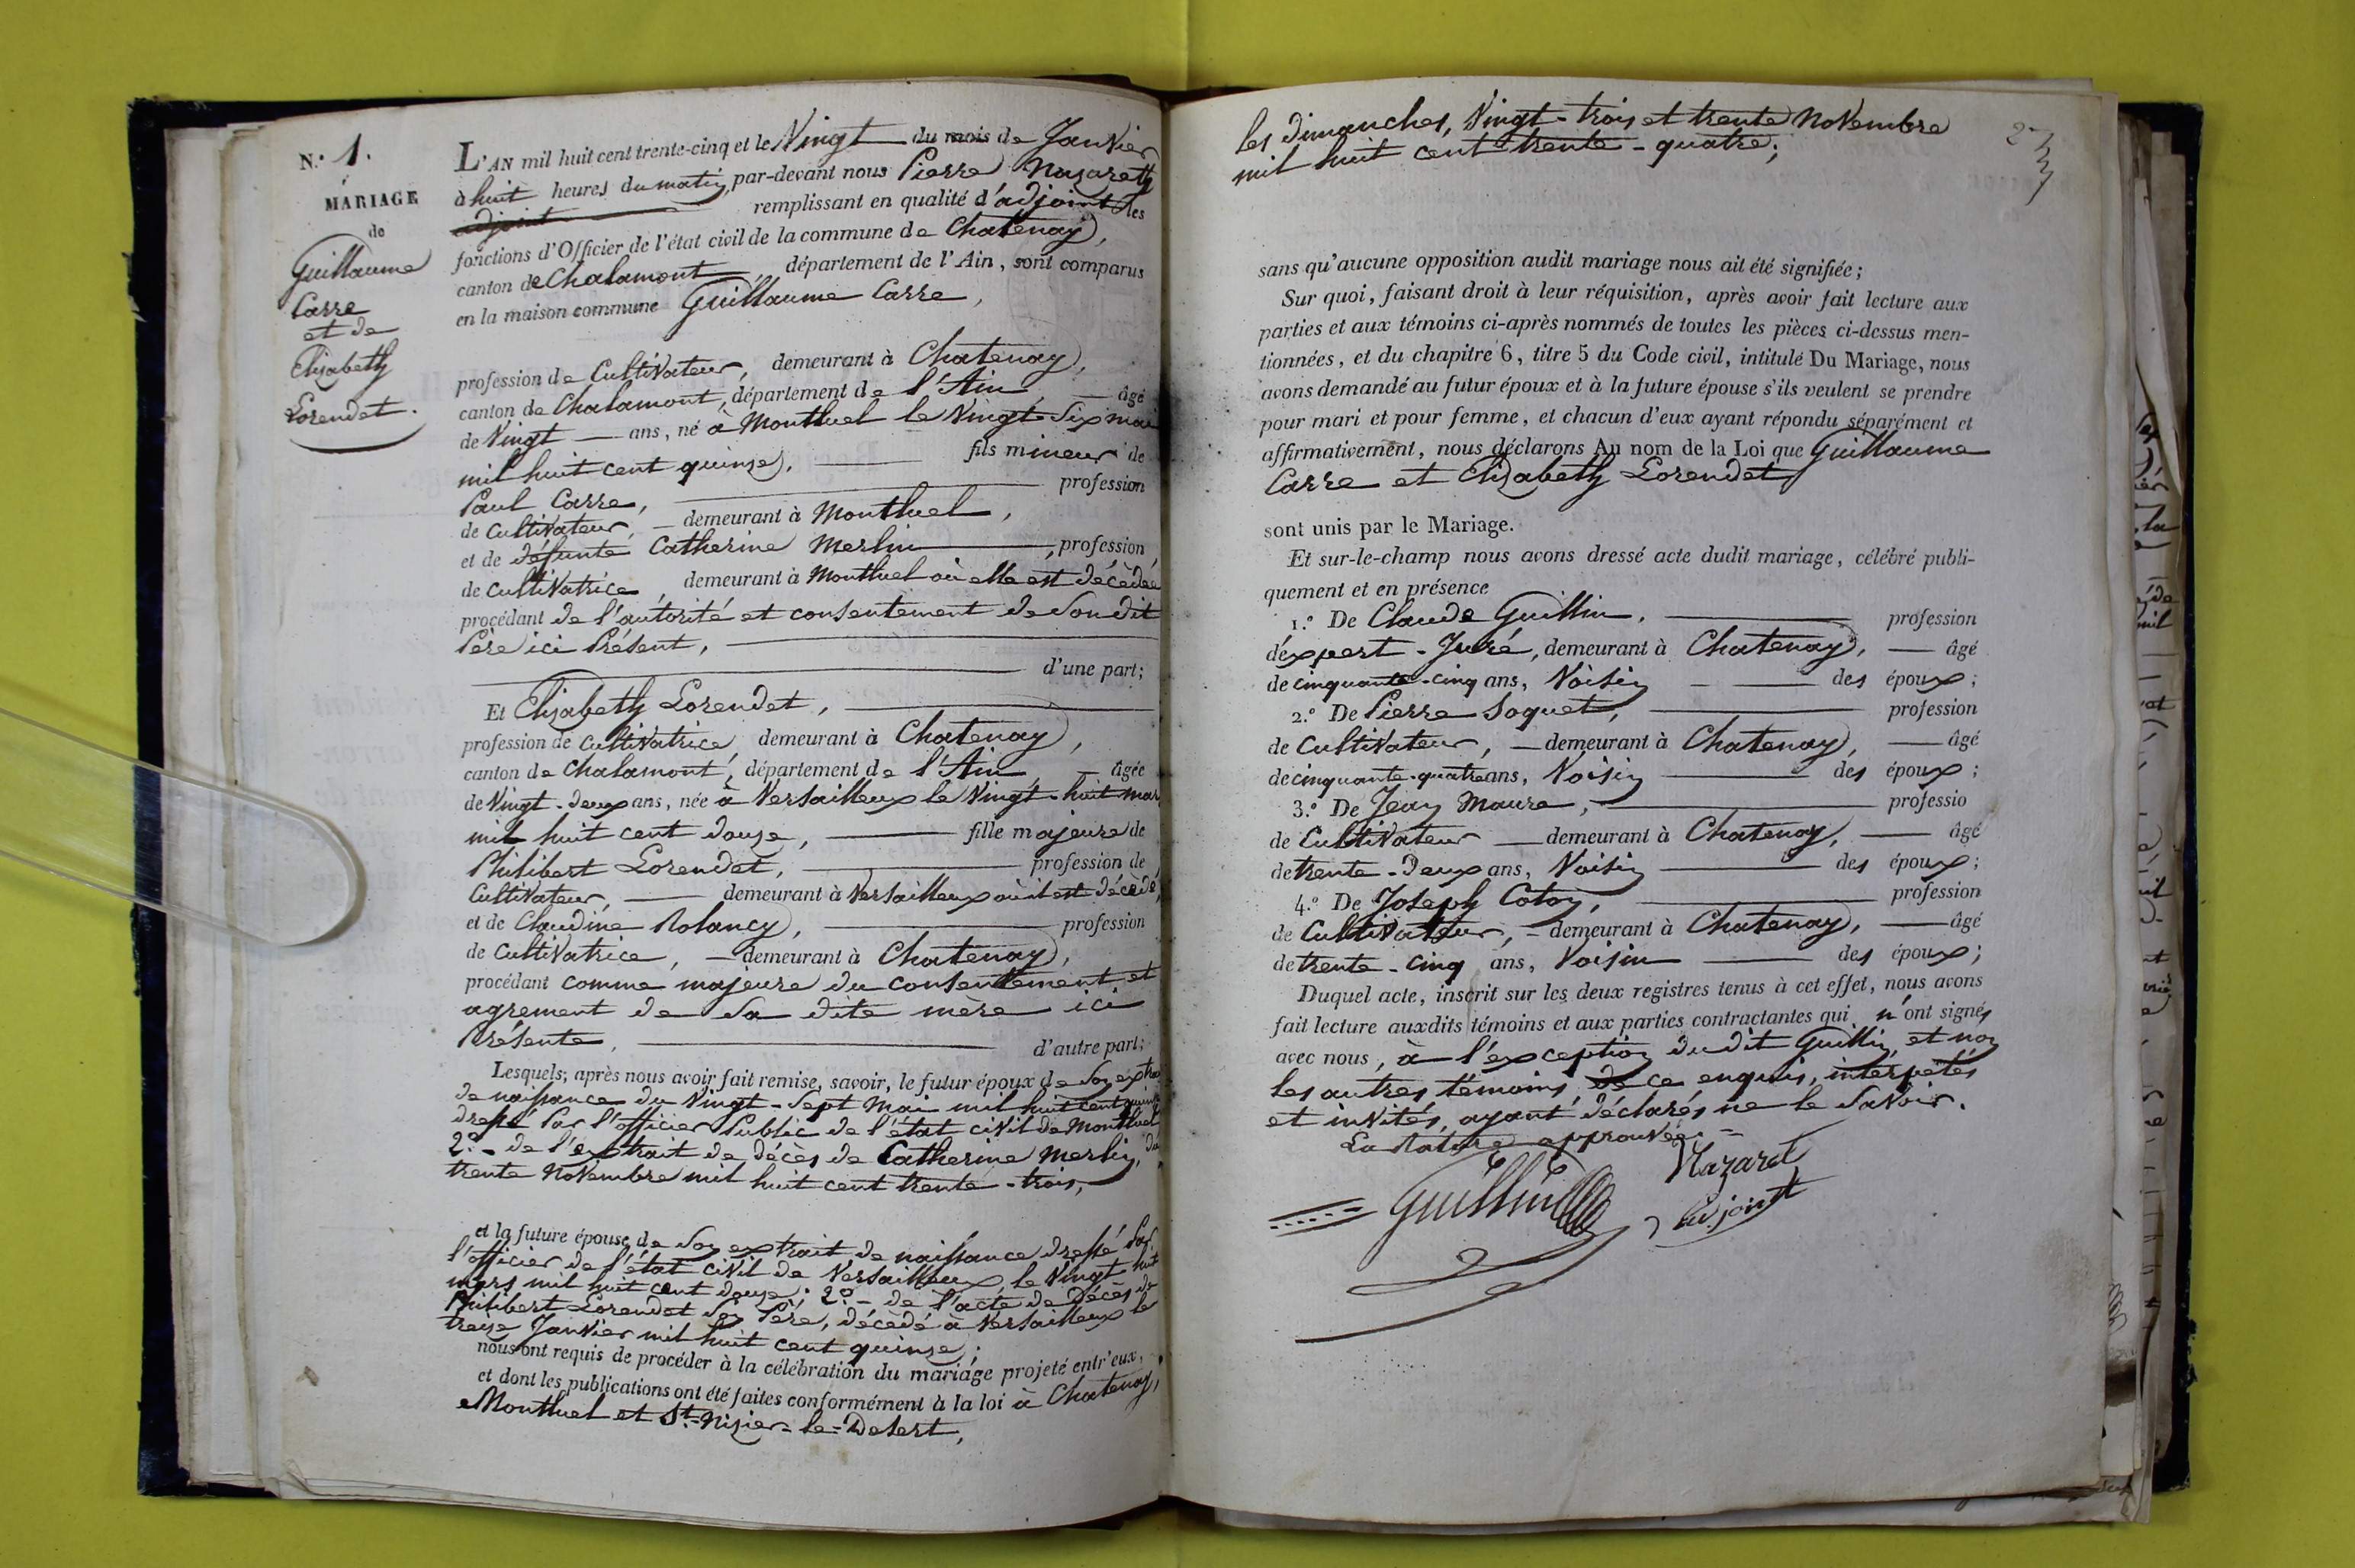 N.° 1.
MARIAGE
de
Guillaume
Carre
et de
Elisabeth
Lorendet.
L'AN mil huit cent trente-cinq et le Vingt du mois de Janvier
à huit heures du matin, par-devant nous Pierre Nazareth
adjoint remplissant en qualité d'adjoint les
fonctions d'Officier de l'état civil de la commune de Chatenay,
canton de Chalamont département de l'Ain, sont comparus
en la maison commune Guillaume Carre,
profession de Cultivateur, demeurant à Chatenay,
canton de Chalamont, département de l'Ain âgé
de Vingt ans, né à Montluel le Vingt-Six mai
mil huit cent quinze, fils mineur de
Paul Carre, profession
de Cultivateur, demeurant à Montluel,
et de défunte Catherine Merlin, profession
de Cultivatrice, demeurant à Montluel où elle est décédée
procédant de l'autorité et consentement de Son dit
Père ici Présent,
d'une part;
Et Elisabeth Lorendet,
profession de Cultivatrice, demeurant à Chatenay,
canton de Chalamont, département de l'Ain âgée
de Vingt-deux ans, née à Versailleux le Vingt-huit mars
mil huit cent douze, fille majeure de
Philibert Lorendet, profession de
Cultivateur, demeurant à Versailleux où il est décédé,
et de Claudine Rolancy, profession
de Cultivatrice, demeurant à Chatenay,
procédant comme majeure du consentement et
agrement de Sa dite mère ici
Présente, d'autre part;
Lesquels, après nous avoir fait remise, savoir, le futur époux de Son extrait
de naissance du Vingt-Sept Mai mil huit cent quinze
dressé Par l'officier Public de l'état civil de Montluel
2.° - de l'extrait de décès de Catherine Merlin, du
trente Novembre mil huit cent trente-trois,
et la future épouse de Son extrait de naissance dressé Par
l'officier de l'état civil de Versailleux, le Vingt-huit
mars mil huit cent douze; 2.° - de l'acte de décès de
Philibert Lorendet Son Père, décédé à Versailleux le
treize Janvier mil huit cent quinze;
nous ont requis de procéder à la célébration du mariage projeté entr'eux,
et dont les publications ont été faites conformément à la loi à Chatenay,
Montluel et St.-Nizier-le-Desert,
les dimanches, Vingt-trois et trente Novembre
mil huit cent trente-quatre;
sans qu'aucune opposition audit mariage nous ait été signifiée;
Sur quoi, faisant droit à leur réquisition, après avoir fait lecture aux
parties et aux témoins ci-après nommés de toutes les pièces ci-dessus men-
tionnées, et du chapitre 6, titre 5 du Code civil, intitulé Du Mariage, nous
avons demandé au futur époux et à la future épouse s'ils veulent se prendre
pour mari et pour femme, et chacun d'eux ayant répondu séparément et
affirmativement, nous déclarons Au nom de la Loi que Guillaume
Carre et Elisabeth Lorendet
sont unis par le Mariage.
Et sur-le-champ nous avons dressé acte dudit mariage, célébré publi-
quement et en présence
1.° De Claude Guillin, profession
d'expert-Juré, demeurant à Chatenay, âgé
de cinquante-cinq ans, Voisin des époux;
2.° De Pierre Soquet, profession
de Cultivateur, demeurant à Chatenay, âgé
de cinquante-quatre ans, Voisin des époux;
3.° De Jean Maure, professio
de Cultivateur demeurant à Chatenay, âgé
de trente-deux ans, Voisin des époux;
4.° De Joseph Coton, profession
de Cultivateur, demeurant à Chatenay, âgé
de trente-cinq ans, Voisin des époux;
Duquel acte, inscrit sur les deux registres tenus à cet effet, nous avons
fait lecture auxdits témoins et aux parties contractantes qui n'ont signés
avec nous, à l'exception du dit Guillin, et non
les autres témoins, de ce enquis, interpetés
et invités, ayant déclarés ne le Savoir.
La Rature approuvée =
Guillin Nazaret
adjoint